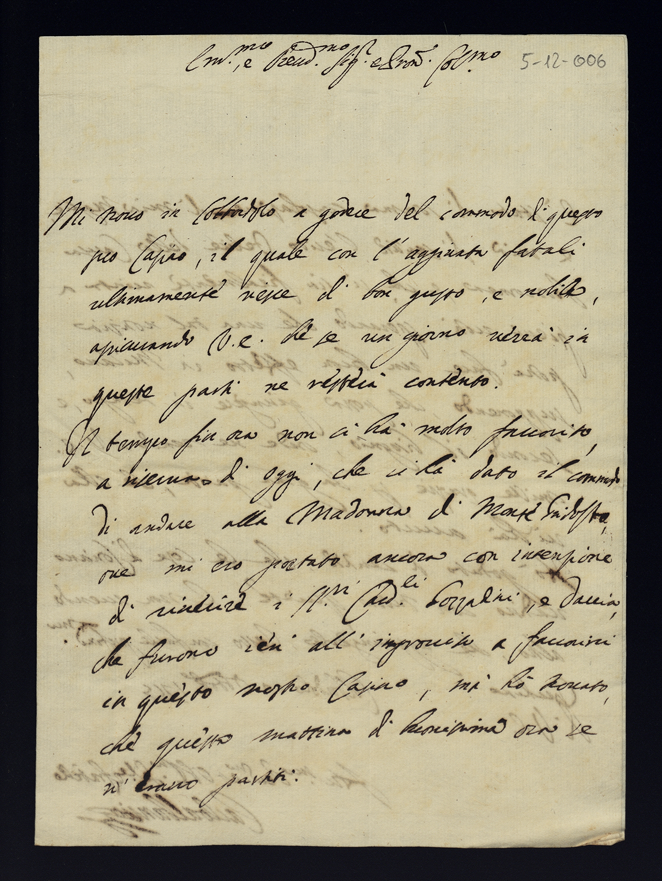 Em.mo, e Rend.mo Sig.r e Pron. Col.mo
5-12-006
Mi trovo in Cottordolo a godere del commodo di questo
suo Casino, il quale con l'aggiunta fatali
ultimamente riesce di bon gusto, e nobile,
assicurando V.E. che se un giorno verrà in
queste parti ne resterà contento.
Il tempo fin ora non ci ha molto favorito,
a riserva di oggi, che ci ha dato il commodo
di andare alla Madonna di Monte
ove mi ero portato ancora con intenzione
di riverire i SS.ri Card.li Gozzadini, e Dacia,
che furono ieri all'improviso a favorirci
in questo nostro Casino, mà hò trovato,
che questa mattina di bonissima ora se
n'erano partiti.